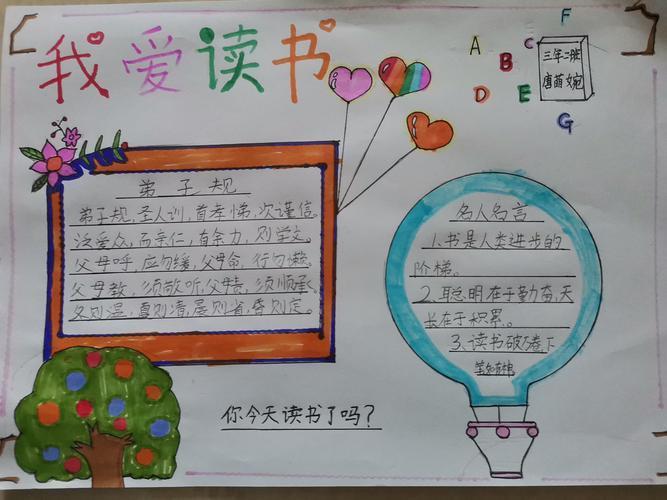 我爱读书
A B C D E F G
三年二班
唐萌婉
弟子规
弟子规,圣人训,首孝悌,次谨信。
泛爱众,而亲仁,有余力,则学文。
父母呼,应勿缓,父母命,行勿懒。
父母教,须敬听,父母责,须顺承。
冬则温,夏则清,晨则省,昏则定。
名人名言
1.书是人类进步的
阶梯。
2.聪明在于勤奋,天
长在于积累。
3.读书破万卷,下
笔如有神
你今天读书了吗?